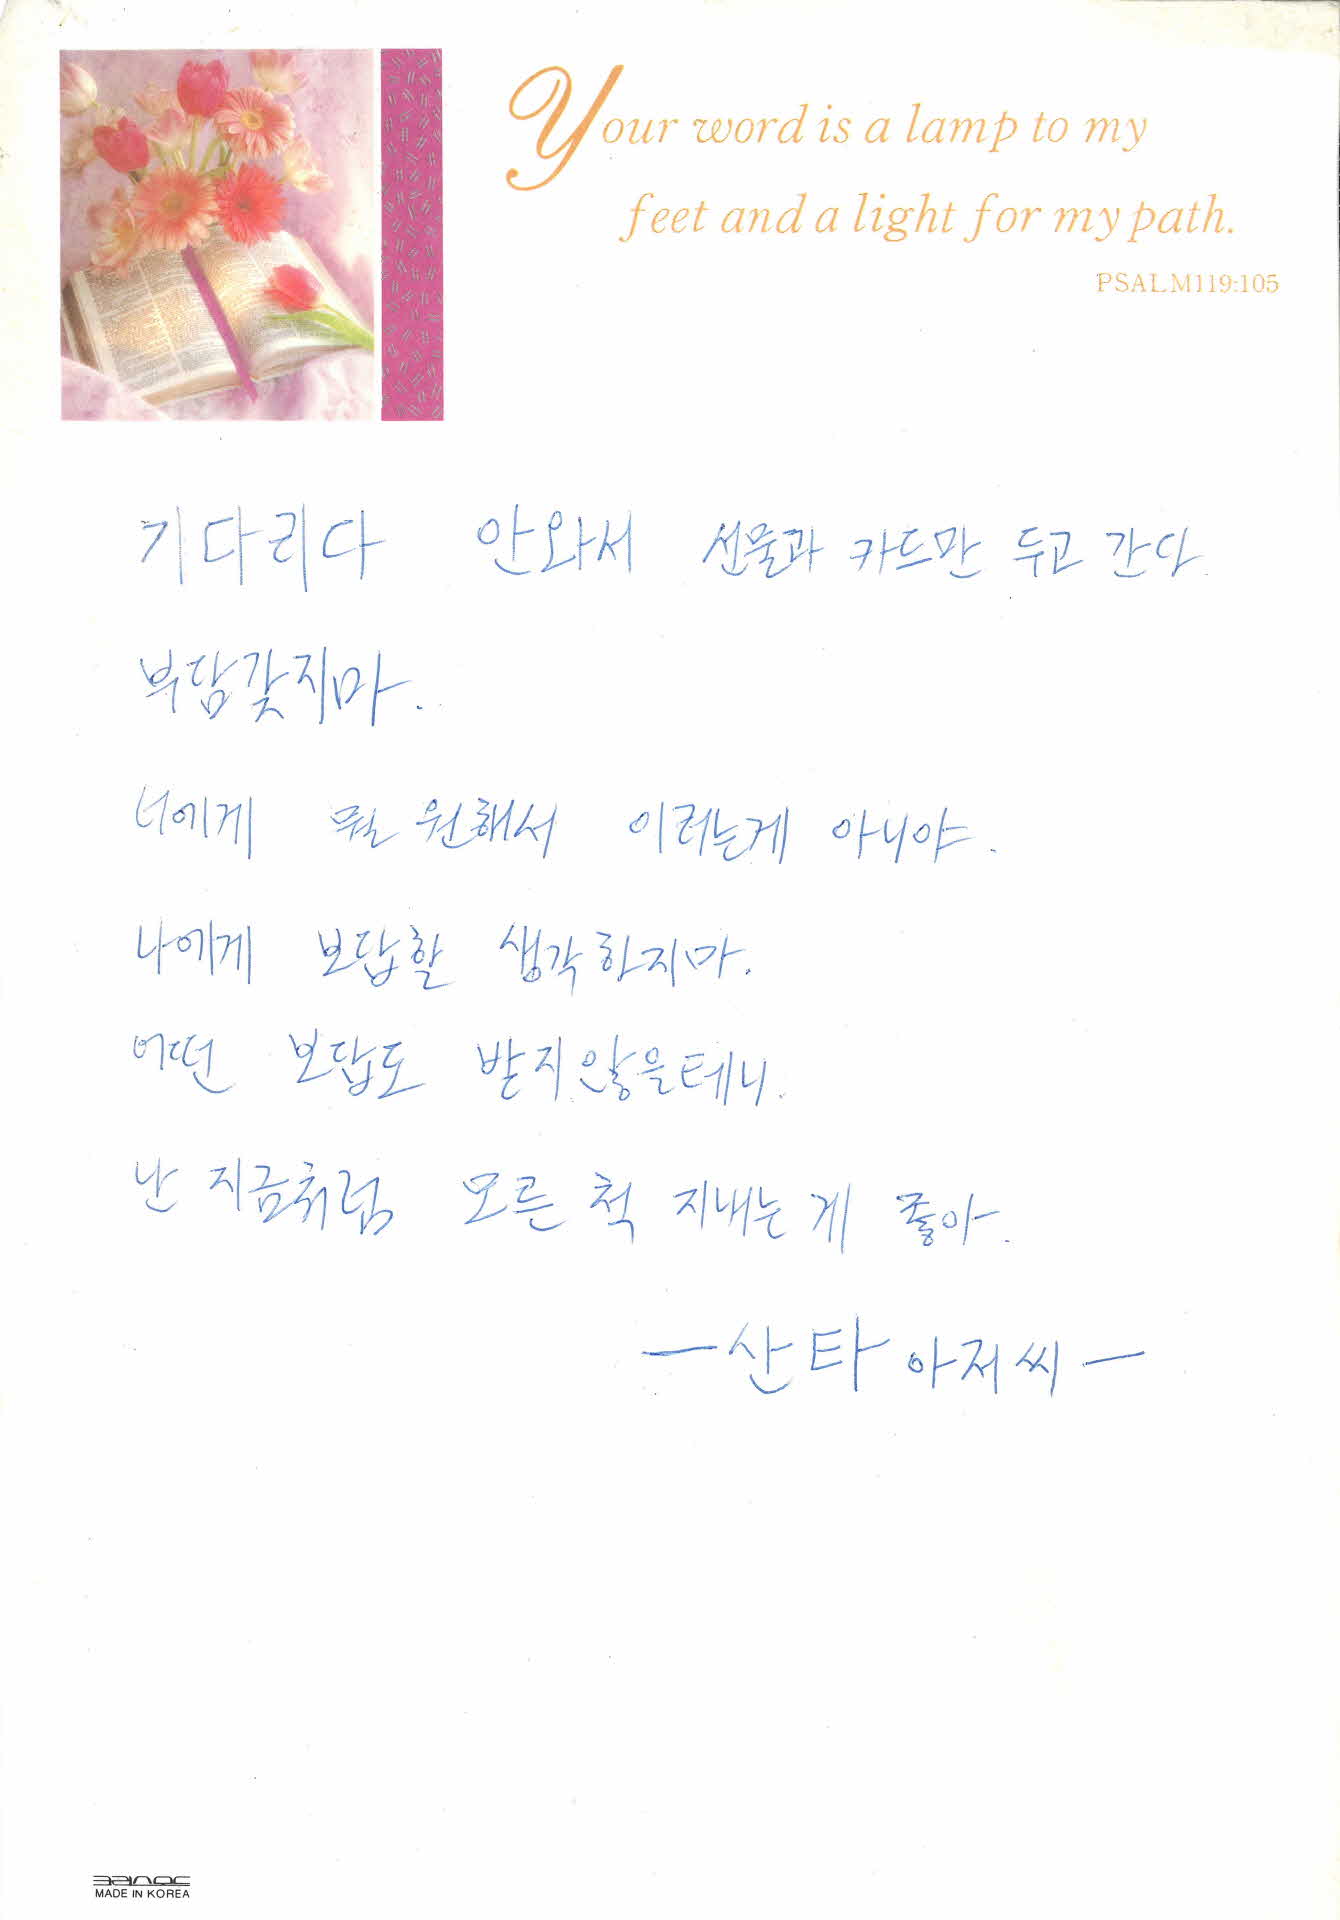 Your word is a lamp to my
feet and a light for my path.
PSALM119:105
기다리다 안와서 선물과 카드만 두고 간다.
부담갖지마.
너에게 뭘 원해서 이러는게 아니야.
나에게 보답할 생각하지마.
어떤 보답도 받지않을테니.
난 지금처럼 모른 척 지내는 게 좋아.
—산타 아저씨—
MADE IN KOREA